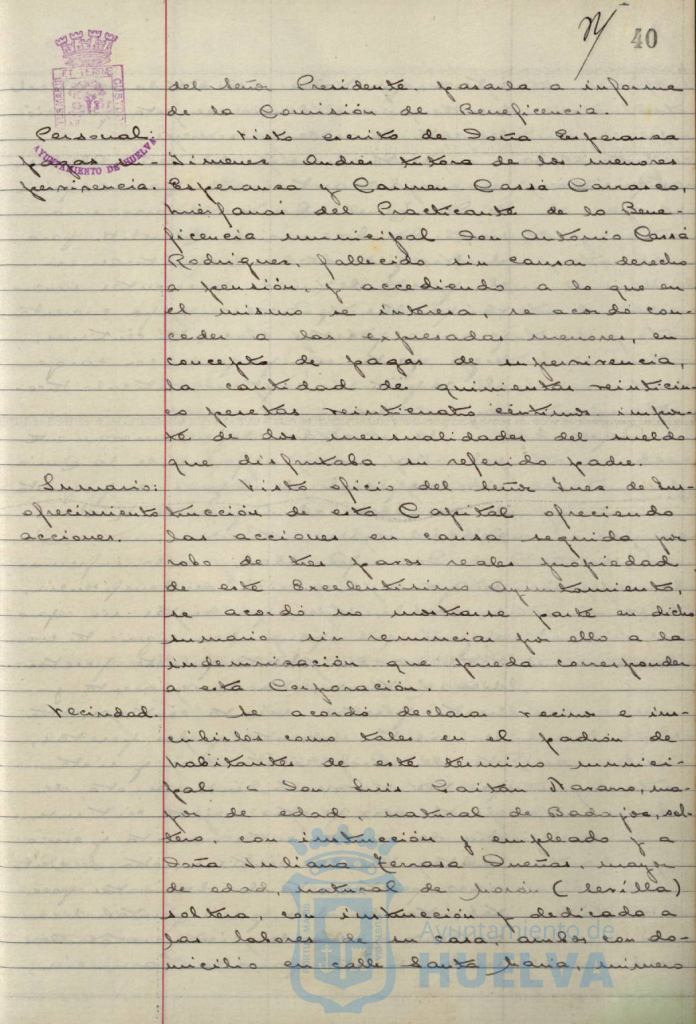 40
del Señor Presidente, pasarla a informe
de la Comisión de Beneficencia.
Personal:
pagas su-
pervivencia.
AYUNTAMIENTO DE HUELVA
Visto escrito de Doña Esperanza
Jimenez Andrés tutora de los menores
Esperanza y Carmen Cassá Carrasco,
huérfanas del Practicante de la Bene-
ficencia municipal Don Antonio Cassá
Rodriguez, fallecido sin causar derecho
a pensión, y accediendo a lo que en
el mismo se interesa, se acordó con-
ceder a las expresadas menores, en
concepto de pagas de supervivencia,
la cantidad de quinientas veinticin-
co pesetas veinticuatro céntimos impor-
te de dos mensualidades del sueldo
que disfrutaba su referido padre.
Sumario:
ofrecimiento
acciones.
Visto oficio del Señor Juez de Ins-
trucción de esta Capital ofreciendo
las acciones en causa seguida por
robo de tres pavos reales propiedad
de este Excelentisimo Ayuntamiento,
se acordó no mostrarse parte en dicho
sumario sin renunciar por ello a la
indemnización que pueda corresponder
a esta Corporación.
Vecindad.
Se acordó declarar vecinos e ins-
cribirlos como tales en el padrón de
habitantes de este término munici-
pal a Don Luis Gaitán Navarro, ma-
yor de edad, natural de Badajoz, sol-
tero, con instrucción y empleado y a
Doña Juliana Terrasa Dueñas, mayor
de edad, natural de Morón (Sevilla)
soltera, con instrucción y dedicado a
las labores de su casa, ambos con do-
micilio en calle Santa Maria, número
Ayuntamiento de
HUELVA